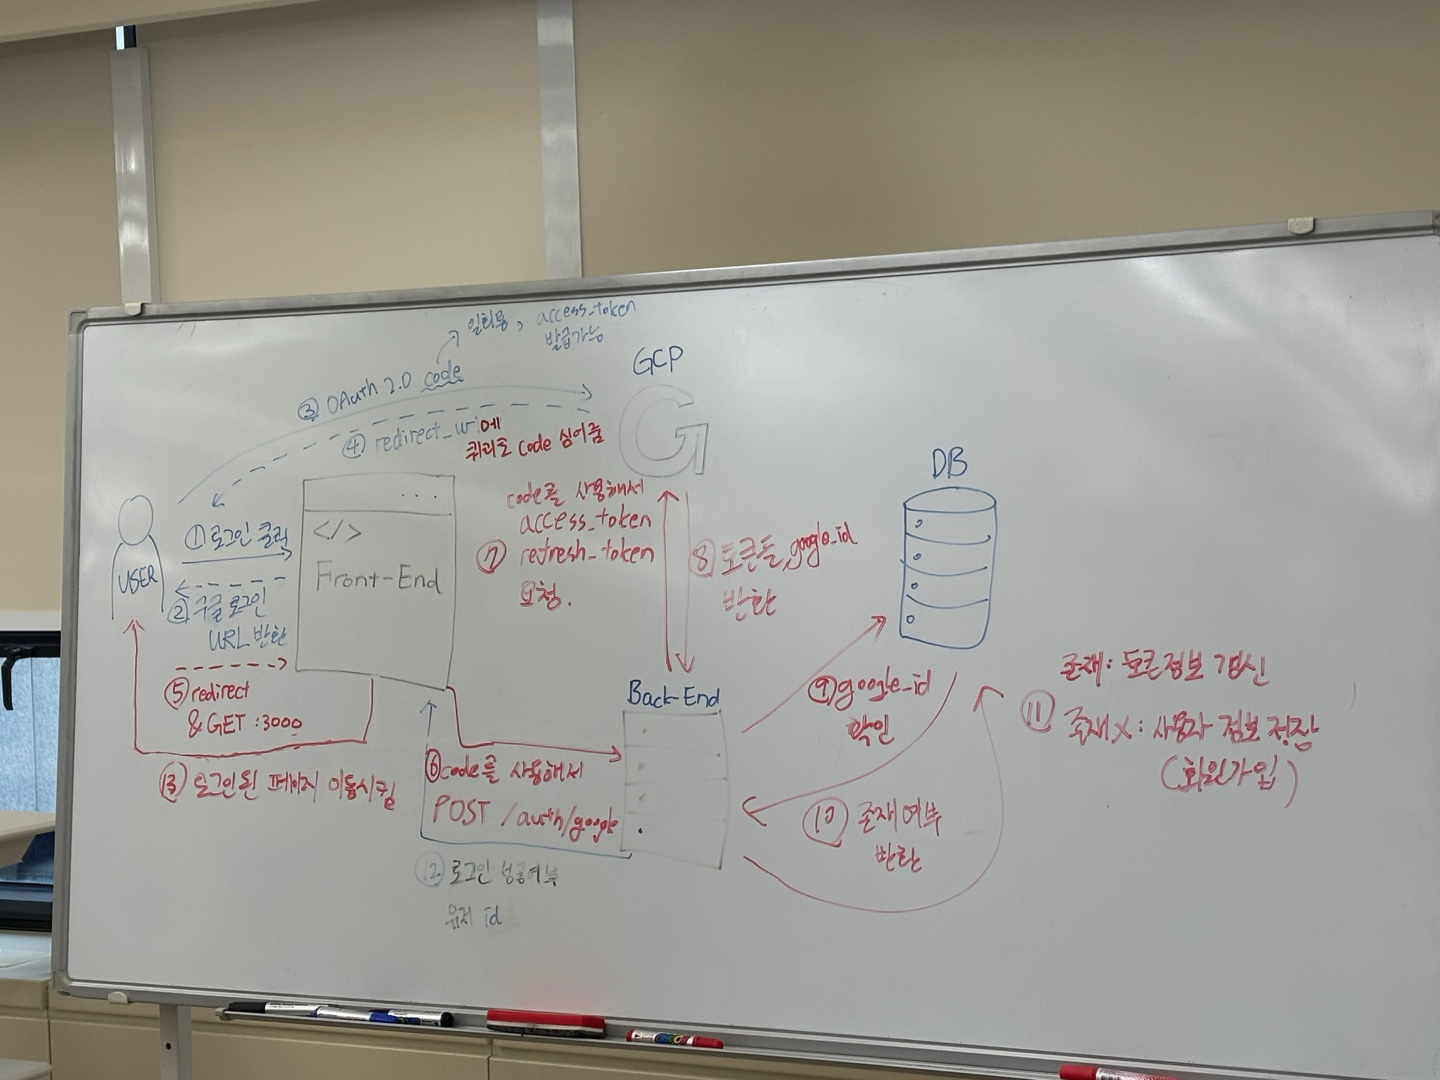 일회용, access_token
발급가능
③ OAuth 2.0 code
GCP
G
④ redirect_uri에
쿼리로 code 심어줌
USER
① 로그인 클릭
② 구글 로그인
URL 반환
⑤ redirect
& GET :3000
</>
Front-End
code를 사용해서
access_token
⑦ refresh_token
요청.
⑧ 토큰들, google_id
반환
DB
Back-End
⑥ code를 사용해서
POST /auth/google
⑨ google_id
확인
⑩ 존재여부
반환
존재: 토큰정보 갱신
⑪ 존재X: 사용자 정보 저장
(회원가입)
⑫ 로그인 성공여부
유저 id
⑬ 로그인된 페이지 이동시킴